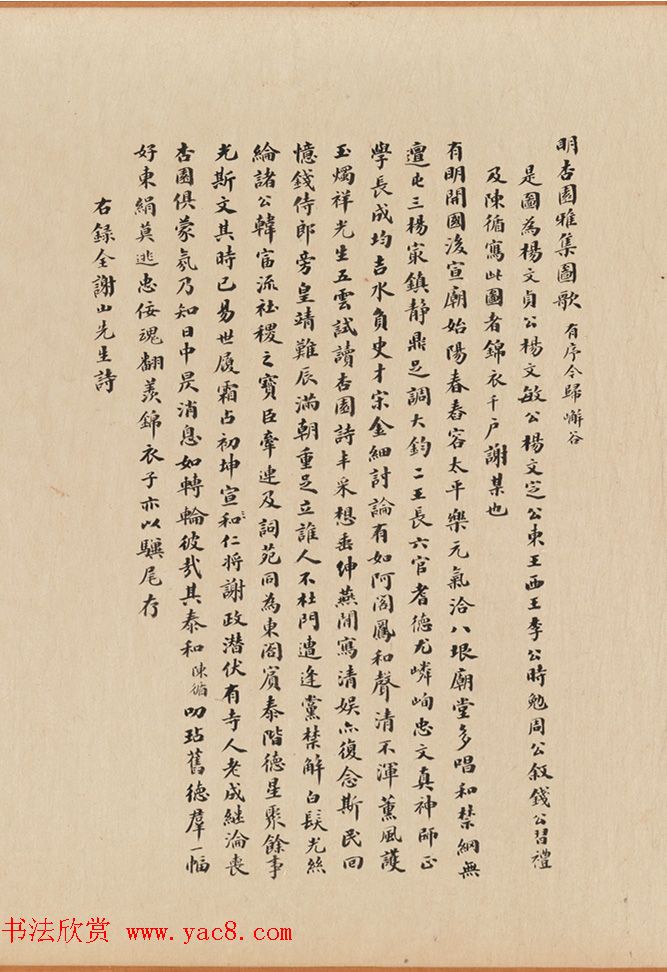 明杏園雅集圖歌 有序今歸嶰谷
是圖為楊文貞公楊文敏公楊文定公東王西王李公時勉周公叙錢公習禮
及陳循寫此圖者錦衣千戶謝某也
有明開國後宣廟始陽春舂容太平樂元氣洽八垠廟堂多唱和禁網無
邅屯三楊家鎮静鼎足調大鈞二王長六官耆德尤嶙峋忠文真神師正
學長成均吉水負史才宗金細討論有如阿閣鳳和聲清不渾薰風護
玉燭祥光生五雲試讀杏園詩丰采想垂紳燕閒寫清娛亦復念斯民回
憶錢侍郎旁皇靖難辰滿朝重足立誰人不杜門遭逢黨禁解白髮尤絲
綸諸公韓富流社稷之寶臣牽連及詞苑同為東閣賓泰階德星聚餘事
光斯文其時已易世履霜占初坤宣和仁將謝政潛伏有寺人老成継淪喪
杏園俱蒙氛乃知日中昃消息如轉輪彼哉其泰和陳循叨玷舊德羣一幅
好東絹莫逃忠佞魂翻羨錦衣子亦以驥尾存
右錄全謝山先生詩
书法欣赏 www.yac8.com